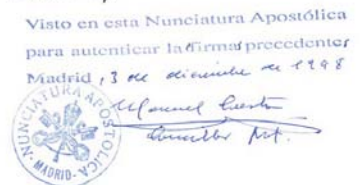 Visto en esta Nunciatura Apostólica
para autenticar la firma precedente
Madrid, 3 de diciembre de 1998
Manuel
NUNCIATURA APOSTOLICA
-MADRID-